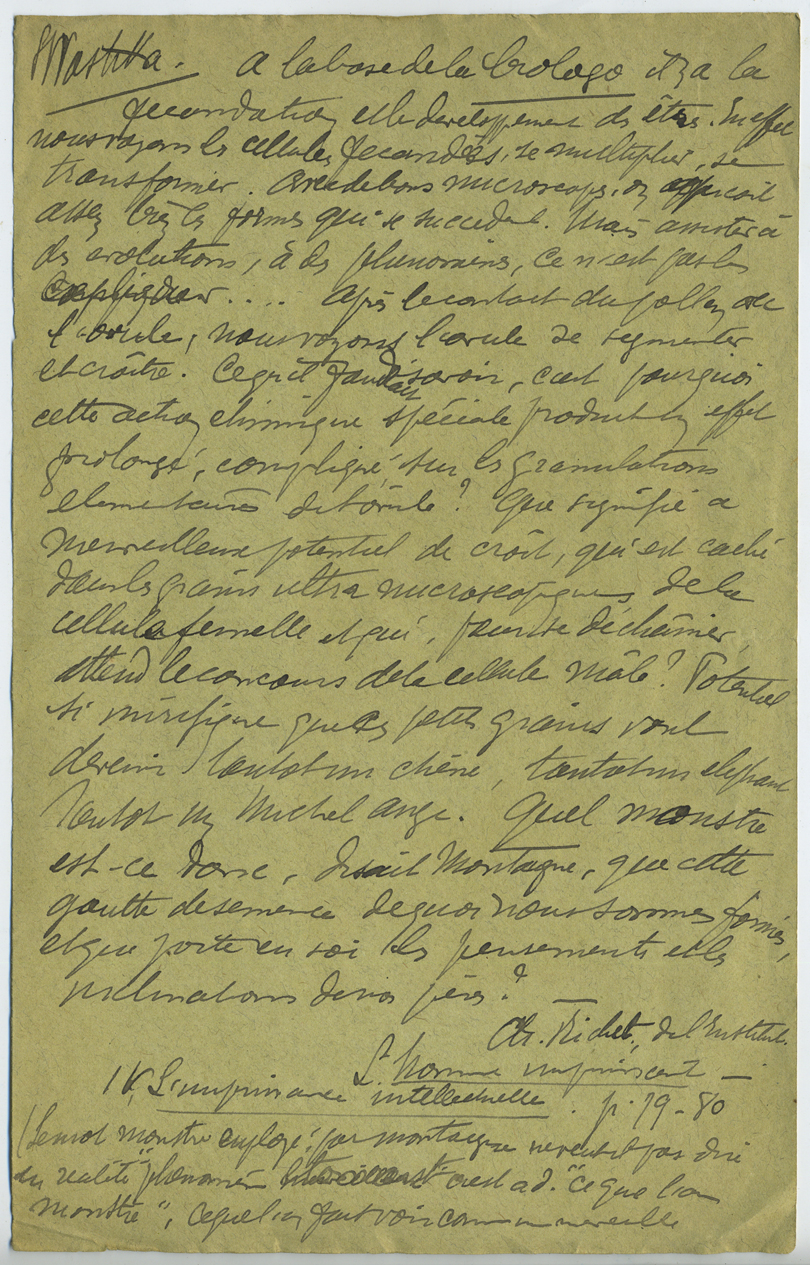 A la base de la biologie il y a la
fécondation et le développement des êtres. En effet
nous voyons les cellules fécondées, se multiplier, se
transformer. Avec de bons microscopes, on aperçoit
assez bien les formes qui se succèdent. Mais assister à
des évolutions, à des phénomènes, ce n'est pas les
expliquer.... Après le contact du pollen avec
l'ovule, nous voyons l'ovule se segmenter
et croître. Ce qu'il faudrait savoir, c'est pourquoi
cette action chimique spéciale produit un effet
prolongé, compliqué, sur les granulations
élémentaires de l'ovule? Que signifie ce
merveilleux potentiel de croît, qui est caché
dans les grains ultra microscopiques de la
cellule femelle et qui, pour se déchaîner,
attend le concours de la cellule mâle? Potentiel
si mirifique que ces petits grains vont
devenir tantôt un chêne, tantôt un éléphant
tantôt un Michel Ange. Quel monstre
est-ce donc, disait Montaigne, que cette
goutte de semence de quoi nous sommes formés,
et que porte en soi les pensements et les
inclinations de nos pères?
Ch. Richet, de l'Institut.
L'homme impuissant —
IV, L'impuissance intellectuelle. p. 79-80
(Le mot monstre employé par Montaigne ne veut pas dire
en réalité "phénomène" c'est a d. "ce que l'on
monstre", ce que l'on fait voir comme une merveille